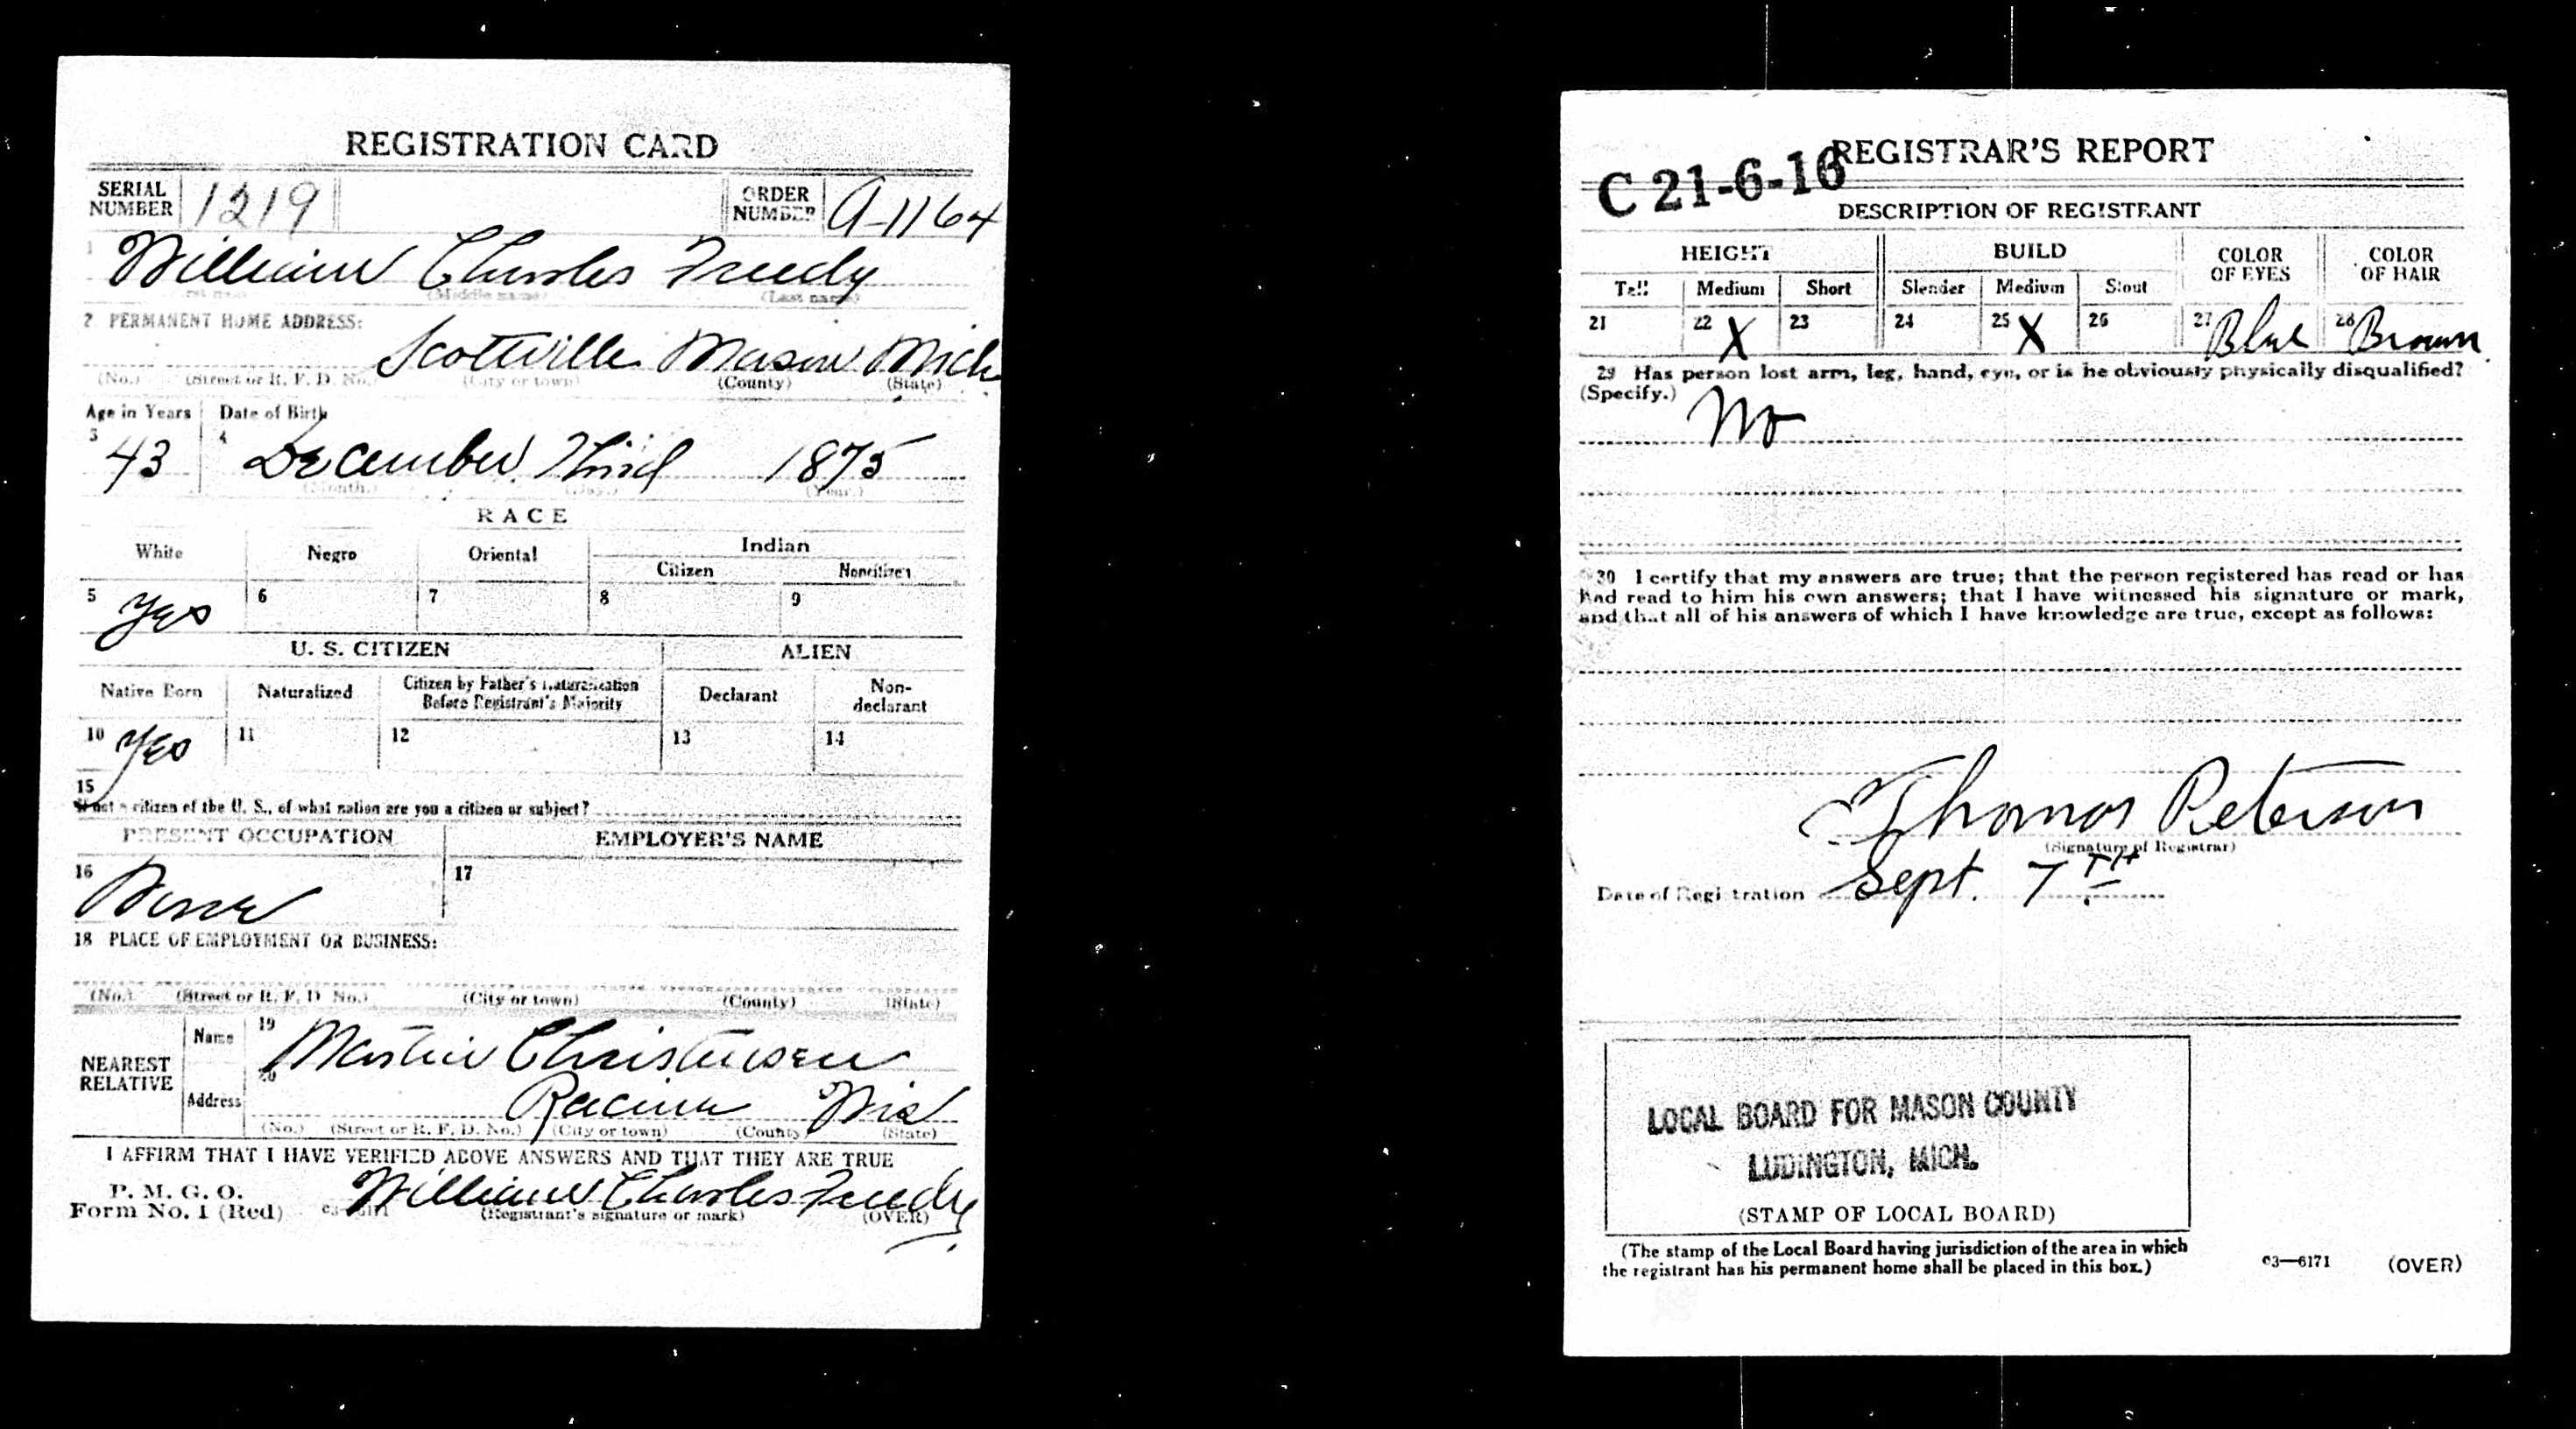 REGISTRATION CARD
SERIAL NUMBER 1219 ORDER NUMBER A-1164
1 William Charles Freedy
(Middle name) (Last name)
2 PERMANENT HOME ADDRESS:
Scottville Mason Mich
(No.) (Street or R. F. D. No.) (City or town) (County) (State)
Age in Years Date of Birth
3 43 4 December Third 1875
(Month.) (Day.) (Year.)
RACE
White Negro Oriental Indian
Citizen Noncitizen
5 Yes 6 7 8 9
U. S. CITIZEN ALIEN
Native Born Naturalized Citizen by Father's Naturalization Before Registrant's Majority Declarant Non-declarant
10 Yes 11 12 13 14
15
If not a citizen of the U. S., of what nation are you a citizen or subject?
PRESENT OCCUPATION EMPLOYER'S NAME
16 None 17
18 PLACE OF EMPLOYMENT OR BUSINESS:
(No.) (Street or R. F. D. No.) (City or town) (County) (State)
NEAREST RELATIVE
Name 19 Martin Christensen
Address 20 Racine Wis
(No.) (Street or R. F. D. No.) (City or town) (County) (State)
I AFFIRM THAT I HAVE VERIFIED ABOVE ANSWERS AND THAT THEY ARE TRUE
P. M. G. O.
Form No. 1 (Red) 03—6171 William Charles Freedy
(Registrant's signature or mark) (OVER)
REGISTRAR'S REPORT
C 21-6-16
DESCRIPTION OF REGISTRANT
HEIGHT BUILD COLOR OF EYES COLOR OF HAIR
Tall Medium Short Slender Medium Stout
21 22 X 23 24 25 X 26 27 Blue 28 Brown
29 Has person lost arm, leg, hand, eye, or is he obviously physically disqualified?
(Specify.) No
30 I certify that my answers are true; that the person registered has read or has
had read to him his own answers; that I have witnessed his signature or mark,
and that all of his answers of which I have knowledge are true, except as follows:
Thomas Peterson
(Signature of Registrar)
Date of Registration Sept. 7TH
LOCAL BOARD FOR MASON COUNTY
LUDINGTON, MICH.
(STAMP OF LOCAL BOARD)
(The stamp of the Local Board having jurisdiction of the area in which
the registrant has his permanent home shall be placed in this box.)
03—6171 (OVER)